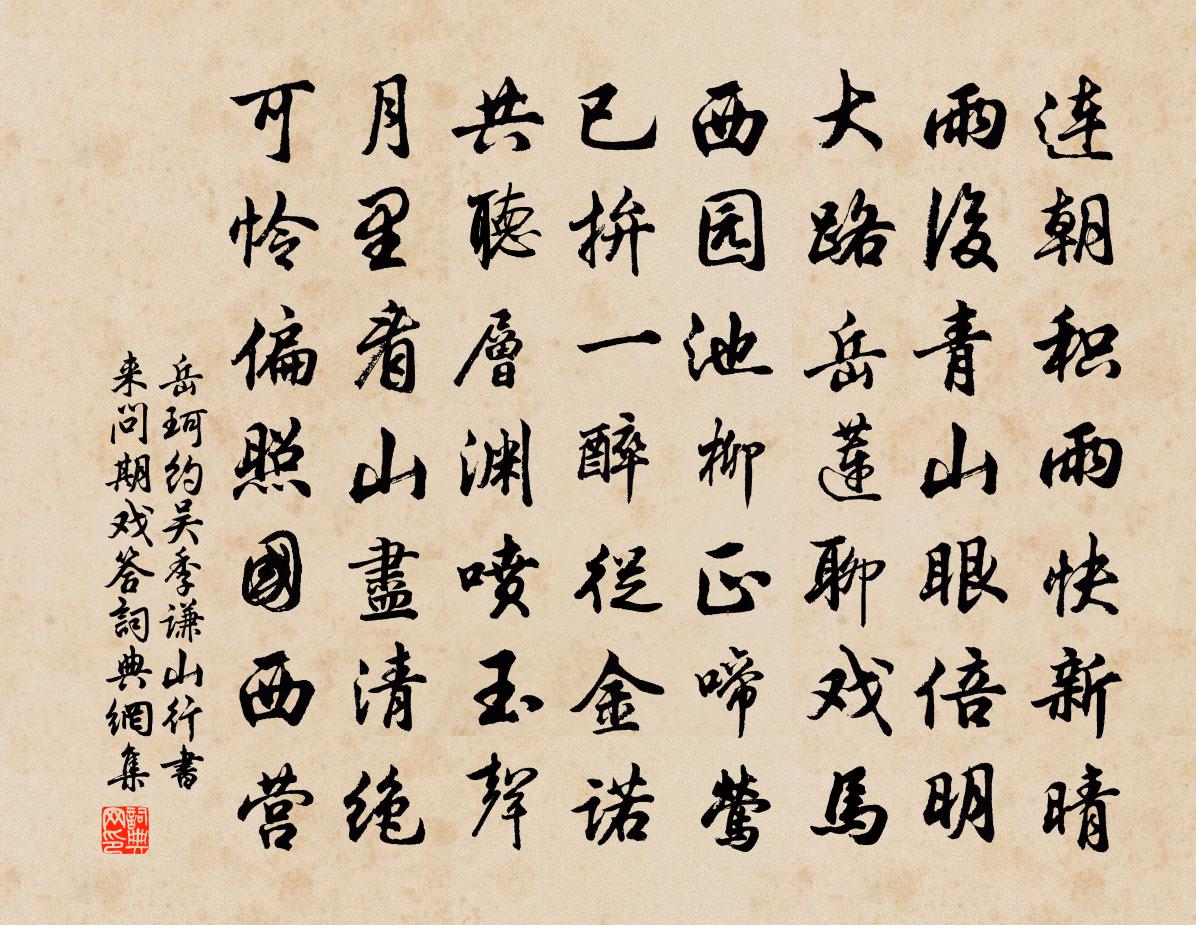 连朝积雨快新晴
雨後青山眼倍明
大路岳莲聊戏馬
西园池柳正啼莺
已拚一醉從金诺
共聽層渊喷玉聲
月里看山盡清绝
可怜偏照國西营
岳珂约吴季谦山行书
来问期戏答詞典網集
詞典网印